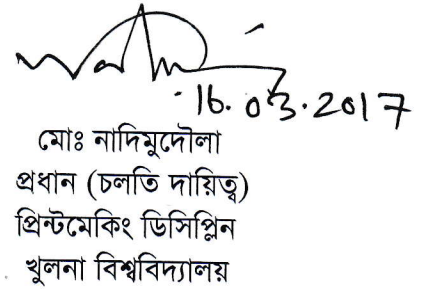 16.03.2017
মোঃ নাদিমুদৌলা
প্রধান (চলতি দায়িত্ব)
প্রিন্টমেকিং ডিসিপ্লিন
খুলনা বিশ্ববিদ্যালয়